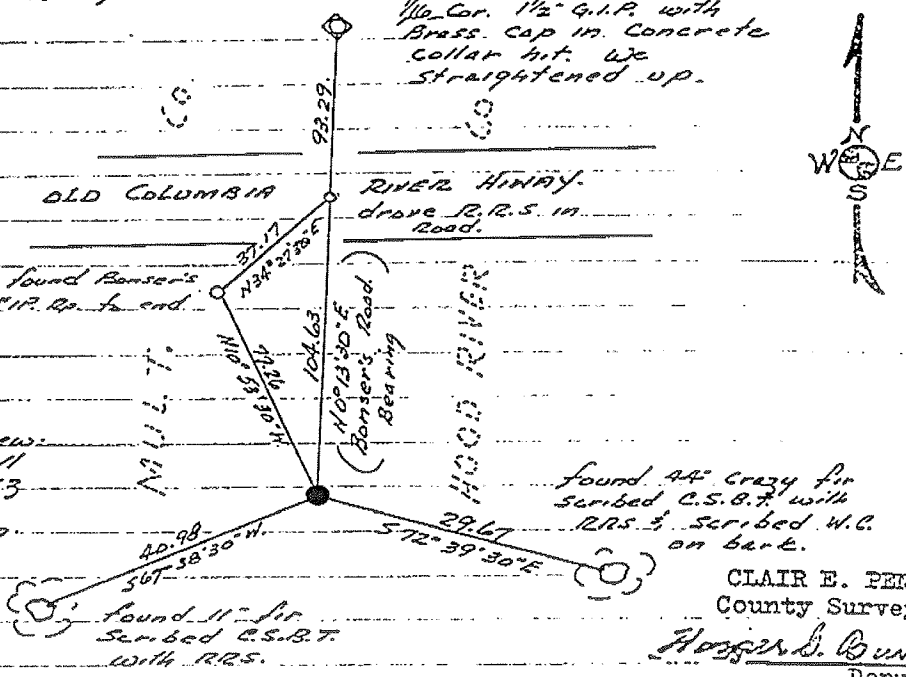 1/16 Cor. 1½" G.I.P. with
Brass Cap in Concrete
collar hit. We
straightened up.
Co.
Co.
93.29
N
W E
S
OLD COLUMBIA RIVER HIWAY.
drove R.R.S. in
Road.
37.17
N34° 27'30"E
found Bonser's
I.P. Rp. to end
104.63
N0°13'30"E
(Bonser's Road
Bearing)
MULT.
HOOD RIVER
ew.
found 44" Crazy fir
scribed C.S.B.T. with
RRS & scribed W.C.
on bark.
40.98
S67° 58'30"W.
29.67
S72° 39'30"E
found 11" fir
Scribed C.S.B.T.
with RRS.
CLAIR E. PEN
County Surve